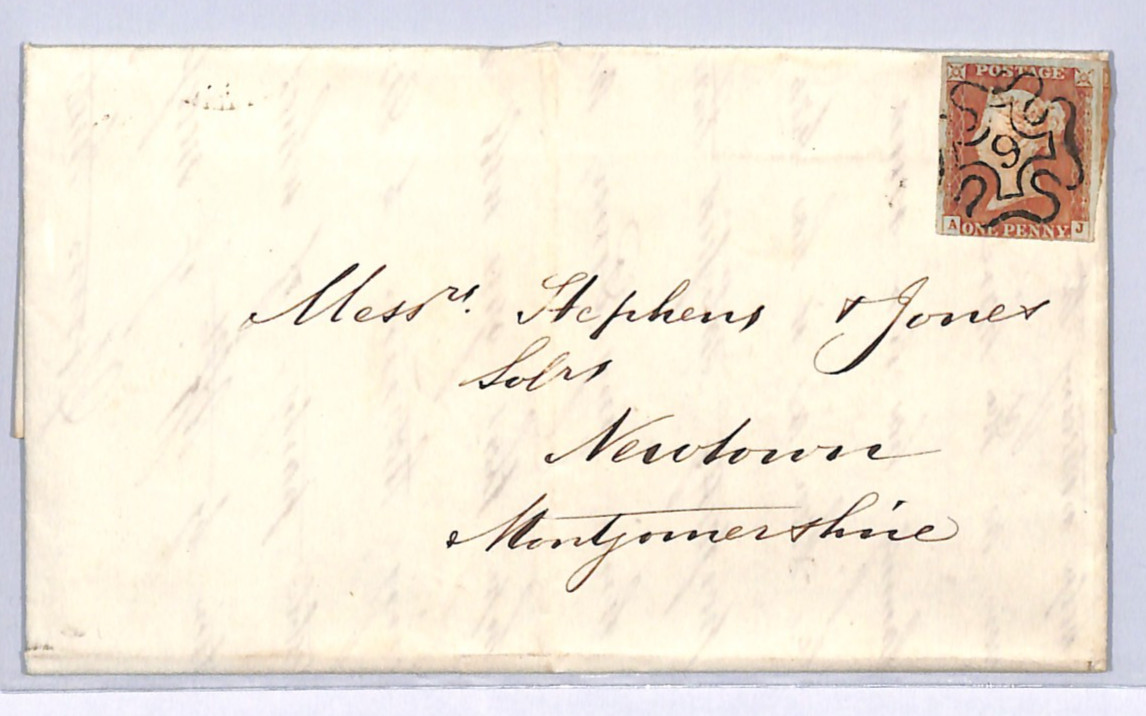 POSTAGE
9
A ONE PENNY J
Messrs. Stephens & Jones
Solrs
Newtown
Montgomershire